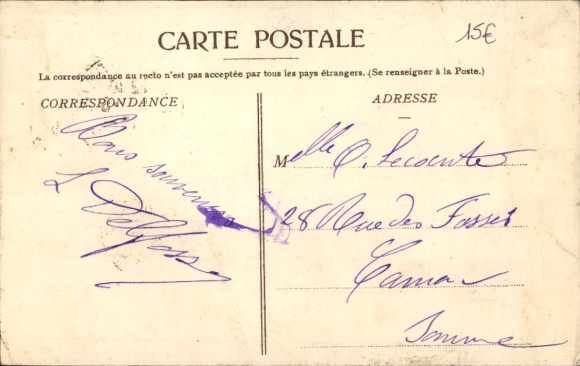 15€
CARTE POSTALE
La correspondance au recto n'est pas acceptée par tous les pays étrangers. (Se renseigner à la Poste.)
CORRESPONDANCE
souvenirs
L Delfosse
ADRESSE
Melle O. Lecointe
28 Rue des Fossés
Somme